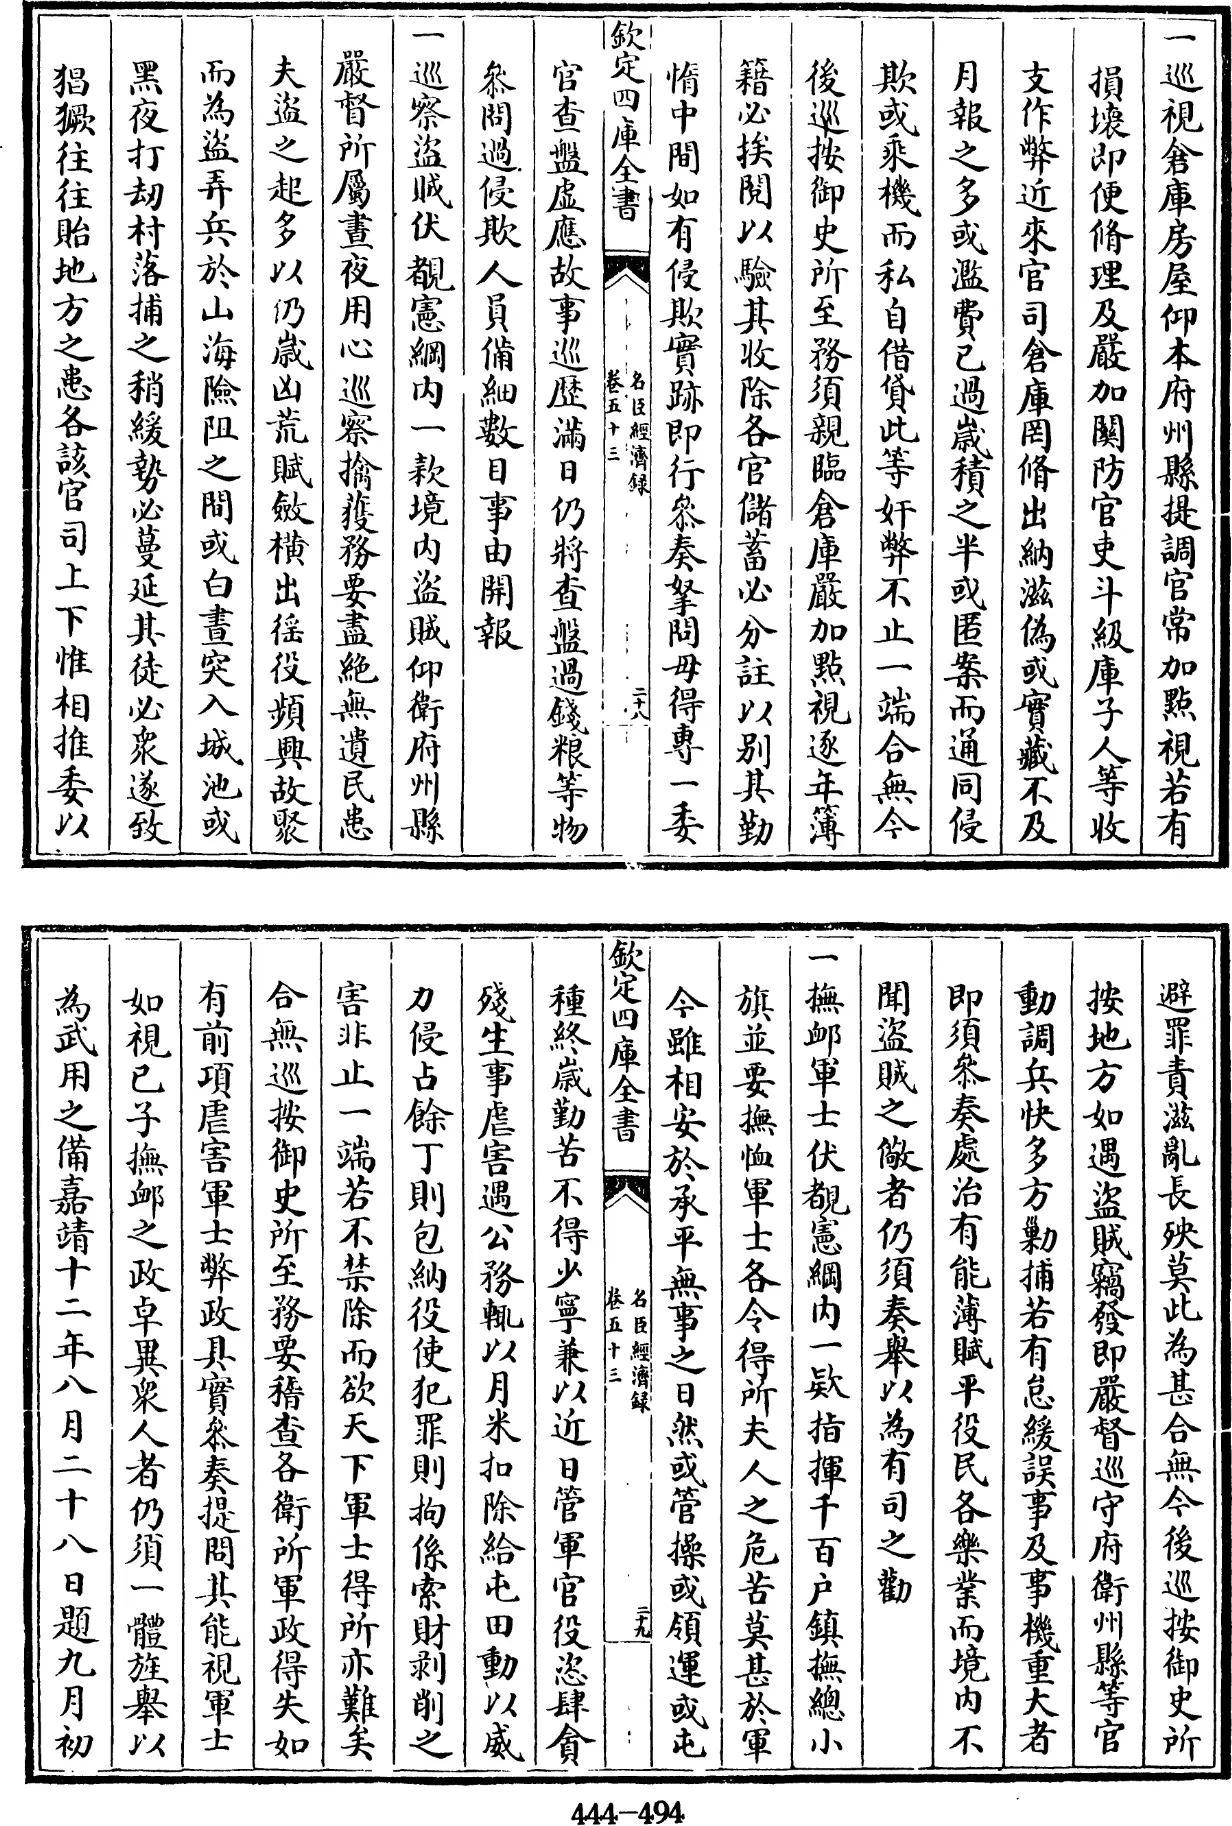 一巡視倉庫房屋仰本府州縣提調官常加㸃視若有
損壞即便脩理及嚴加關防官吏斗級庫子人等收
支作弊近來官司倉庫罔脩出納滋偽或實藏不及
月報之多或濫費已過歲積之半或匿案而通同侵
欺或乘機而私自借貸此等奸弊不止一端合無今
後巡按御史所至務須親臨倉庫嚴加㸃視逐年簿
籍必挨閱以驗其收除各官儲蓄必分註以别其勤
惰中間如有侵欺實跡即行叅奏拏問毋得專一委
欽定四庫全書
名臣經濟録
卷五十三
二十八
官查盤虛應故事巡歷滿日仍將查盤過錢粮等物
叅問過侵欺人員備細數目事由開報
一巡察盜賊伏覩憲綱内一款境内盜賊仰衛府州縣
嚴督所屬晝夜用心巡察擒獲務要盡絶無遺民患
夫盜之起多以仍歲凶荒賦斂横出徭役頻興故聚
而為盜弄兵於山海險阻之間或白晝突入城池或
黑夜打刼村落捕之稍緩勢必蔓延其徒必衆遂致
猖獗往往貽地方之患各該官司上下惟相推委以
避罪責滋亂長殃莫此為甚合無今後巡按御史所
按地方如遇盜賊竊發即嚴督巡守府衛州縣等官
動調兵快多方勦捕若有怠緩誤事及事機重大者
即須叅奏處治有能薄賦平役民各樂業而境内不
聞盜賊之儆者仍須奏舉以為有司之勸
一撫䘏軍士伏覩憲綱内一欵指揮千百户鎮撫總小
旗並要撫恤軍士各令得所夫人之危苦莫甚於軍
今雖相安於承平無事之日然或管操或領運或屯
欽定四庫全書
名臣經濟録
卷五十三
二十九
種終歲勤苦不得少寧兼以近日管軍官役恣肆貪
殘生事虐害遇公務輒以月米扣除給屯田動以威
力侵占餘丁則包納役使犯罪則拘係索財剥削之
害非止一端若不禁除而欲天下軍士得所亦難矣
合無巡按御史所至務要稽查各衛所軍政得失如
有前項虐害軍士弊政具實叅奏提問其能視軍士
如視已子撫䘏之政卓異衆人者仍須一體旌舉以
為武用之備嘉靖十二年八月二十八日題九月初
444-494